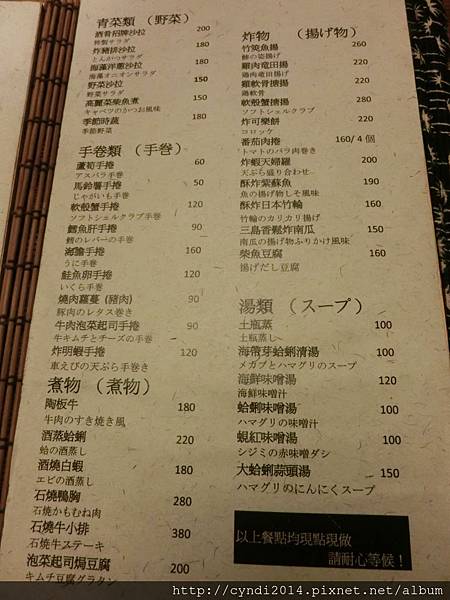 青菜類 （野菜）
酒肴招牌沙拉 200
特製サラダ
炸豬排沙拉 180
とんかつサラダ
海藻洋蔥沙拉 180
海藻オニオンサラダ
野菜沙拉 150
野菜サラダ
高麗菜柴魚煮 150
キャベツのかつお風味
季節時蔬 180
季節野菜
手卷類 （手卷）
蘆筍手捲 60
アスパラ手卷
馬鈴薯手捲 50
じゃがいも手卷
軟殼蟹手捲 120
ソフトシェルクラブ手卷
鱈魚肝手捲 90
鱈のレバーの手卷
海膽手捲 160
うに手卷
鮭魚卵手捲 120
いくら手卷
燒肉蘿蔓 (豬肉) 90
豚肉のレタス巻き
牛肉泡菜起司手捲 90
牛キムチとチーズの手卷
炸明蝦手捲 120
車えびの天ぷら手巻き
煮物 （煮物）
陶板牛 180
牛肉のすき焼き風
酒蒸蛤蜊 220
蛤の酒蒸し
酒燒白蝦 180
エビの酒蒸し
石燒鴨胸 280
石焼かもむね肉
石燒牛小排 380
石焼牛ステーキ
泡菜起司焗豆腐 220
キムチ豆腐グラタン
炸物 （揚げ物）
竹筴魚揚 260
鯵の姿揚げ
雞肉竜田揚 200
鶏肉竜田揚げ
雞軟骨搪揚 200
鶏軟骨
軟殼蟹搪揚 280
ソフトシェルクラブ
炸可樂餅 120
コロッケ
番茄肉捲 160/ 4 個
トマトのバラ肉巻き
炸蝦天婦羅 200
天ぷら盛り合わせ
酥炸紫蘇魚 190
魚の揚げ物しそ風味
酥炸日本竹輪 160
竹輪のカリカリ揚げ
三島香鬆炸南瓜 150
南瓜の揚げ物ふりかけ風味
柴魚豆腐 160
揚げだし豆腐
湯類 （スープ）
土瓶蒸 100
土瓶蒸し
海帶芽蛤蜊清湯 100
メカブとハマグリのスープ
海鮮味噌湯 120
海鮮味噌汁
蛤蜊味噌湯 100
ハマグリの味噌汁
蜆紅味噌湯 100
シジミの赤味噌ダシ
大蛤蜊蒜頭湯 150
ハマグリのにんにくスープ
以上餐點均現點現做
請耐心等候！
http://cyndi2014.pixnet.net/album